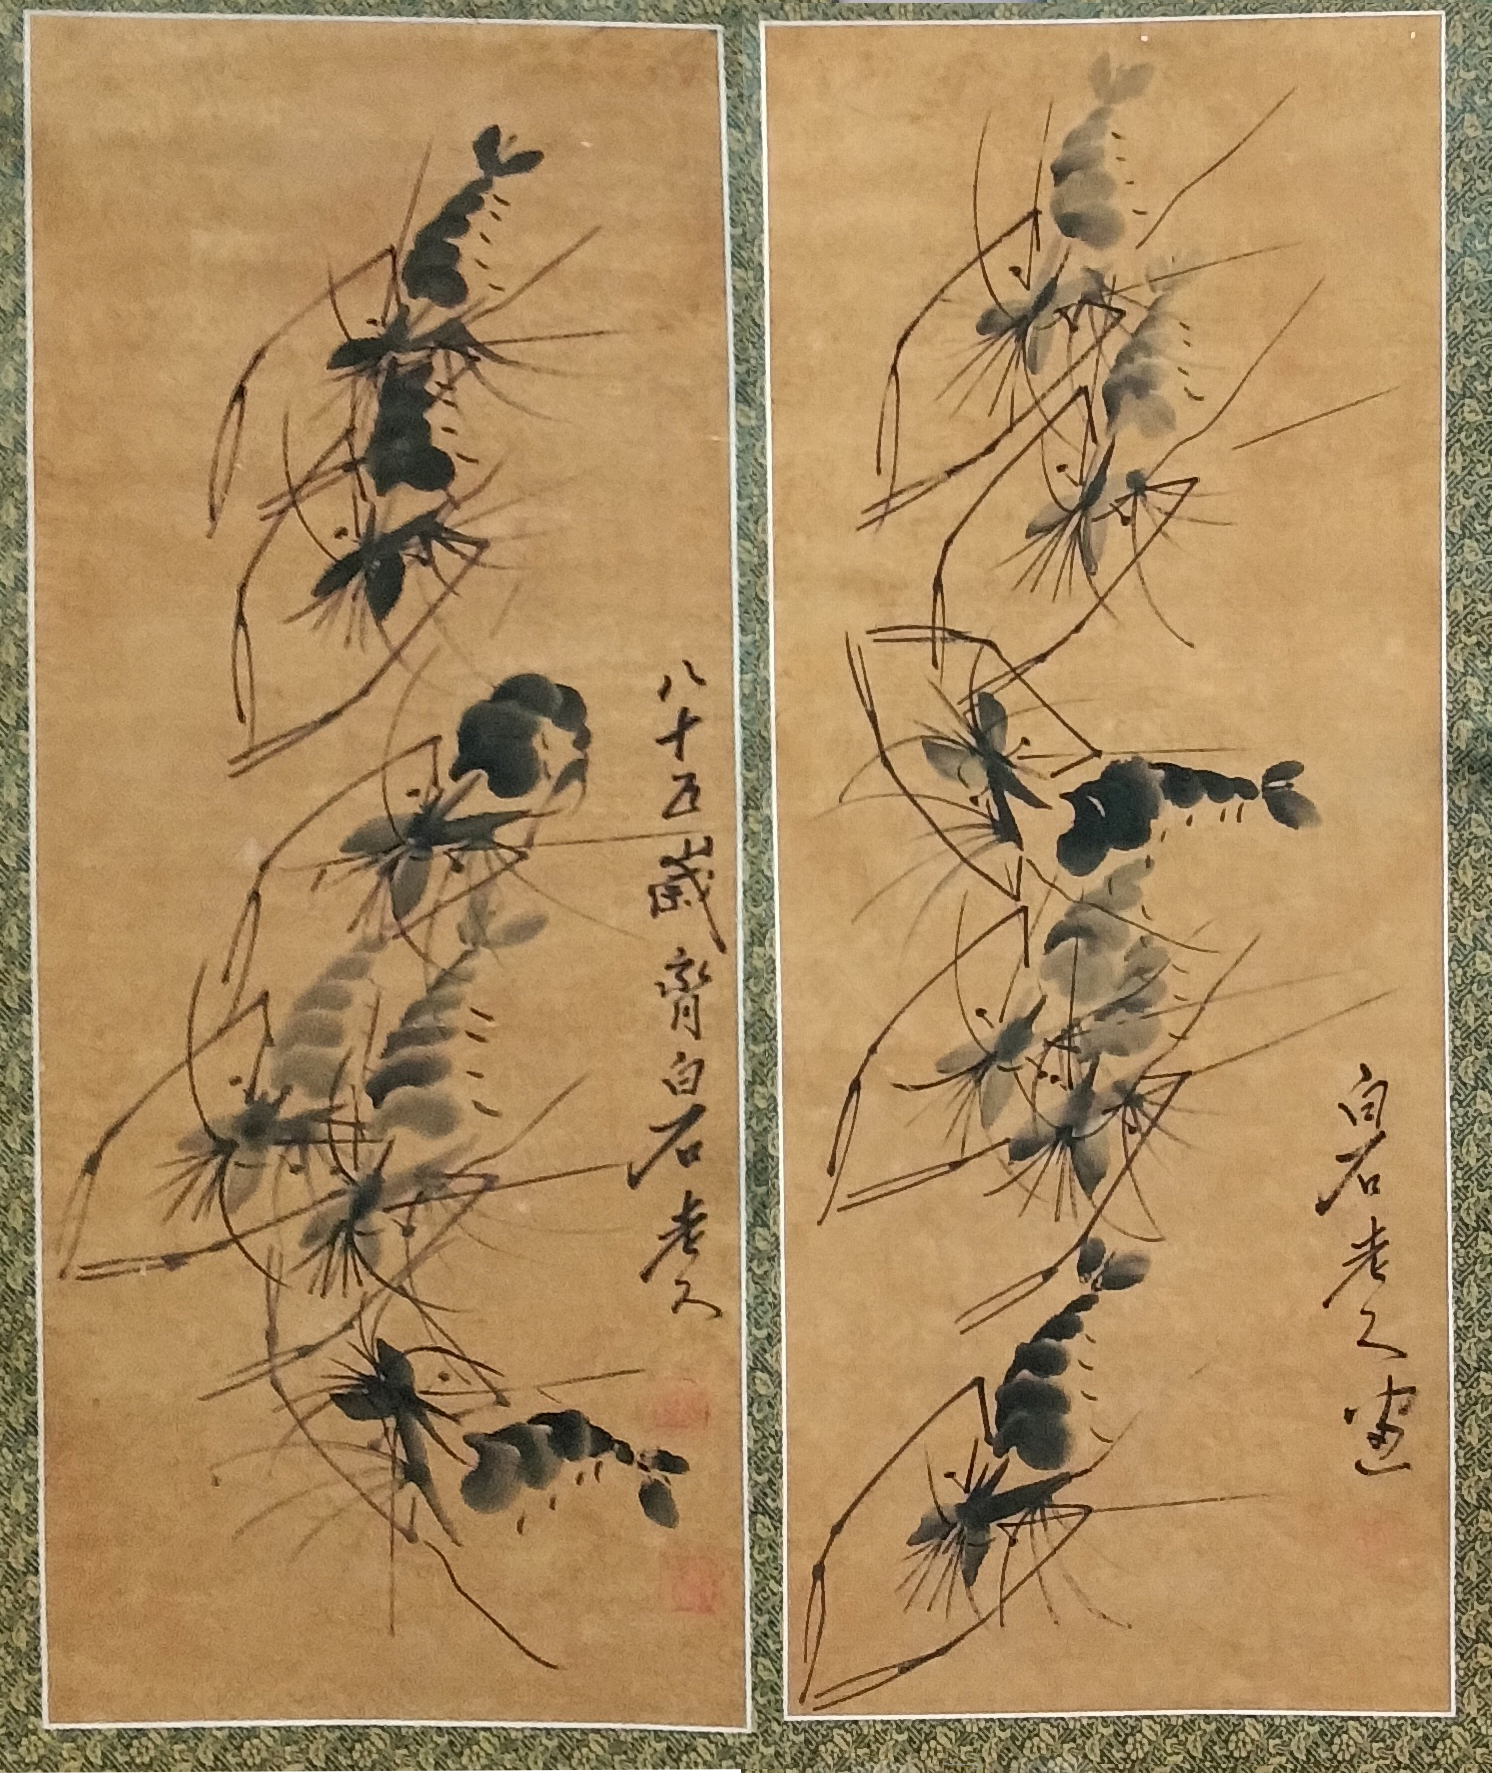 八十五歲齊白石老人
白石老人